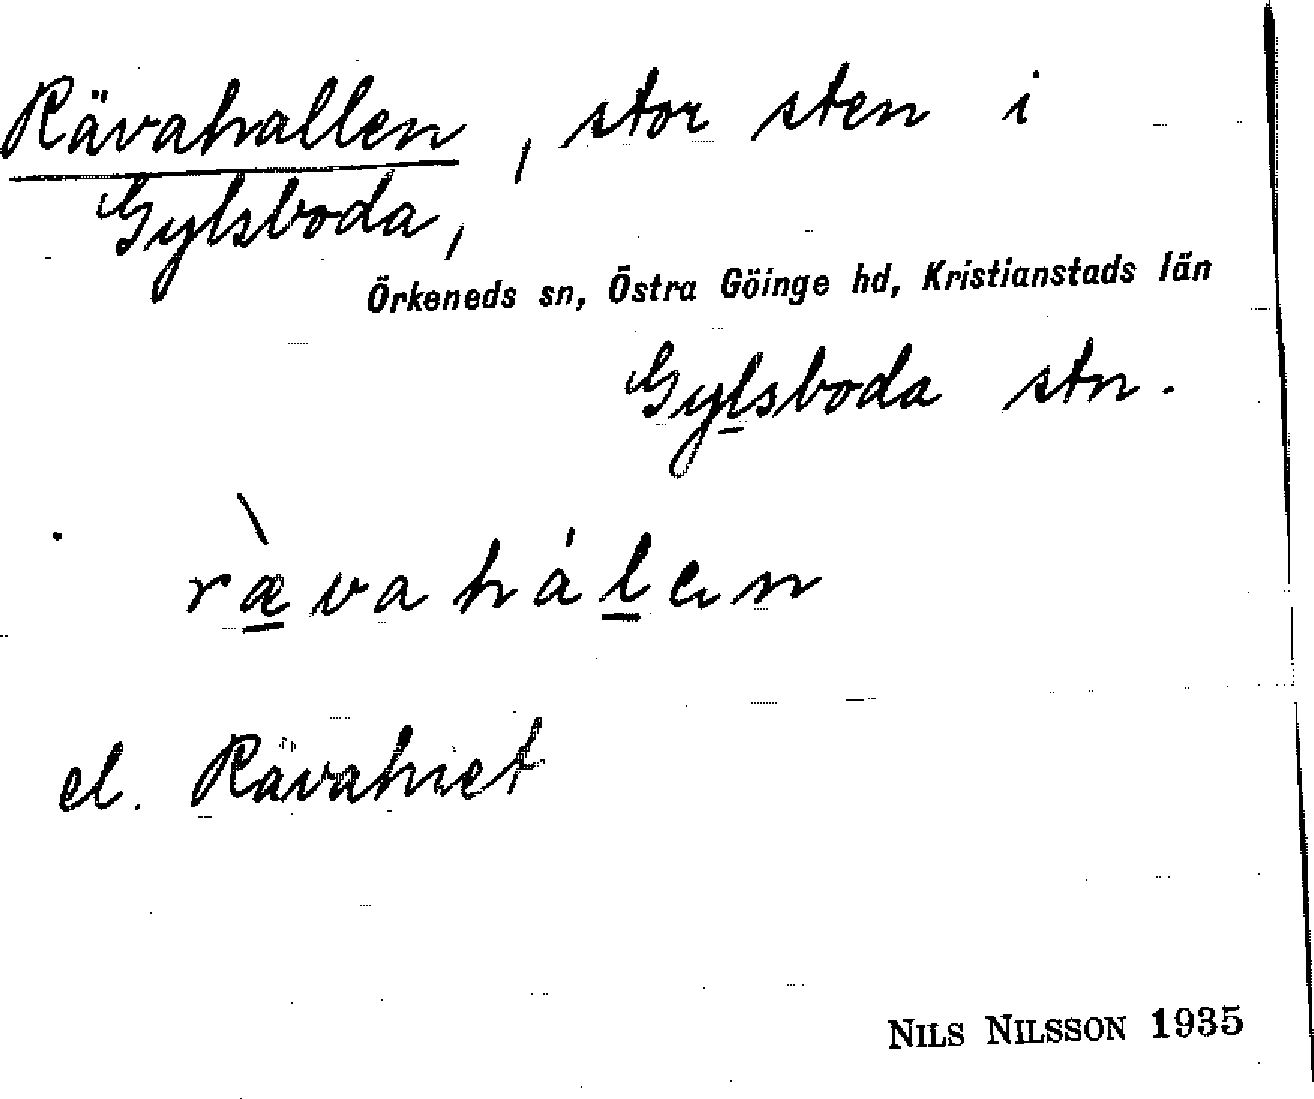 Rävahallen, stor sten i
Gylsboda,
Örkeneds sn, Östra Göinge hd, Kristianstads län
Gylsboda stn.
ræ̀vahálen
el. Rävahiet
NILS NILSSON 1935